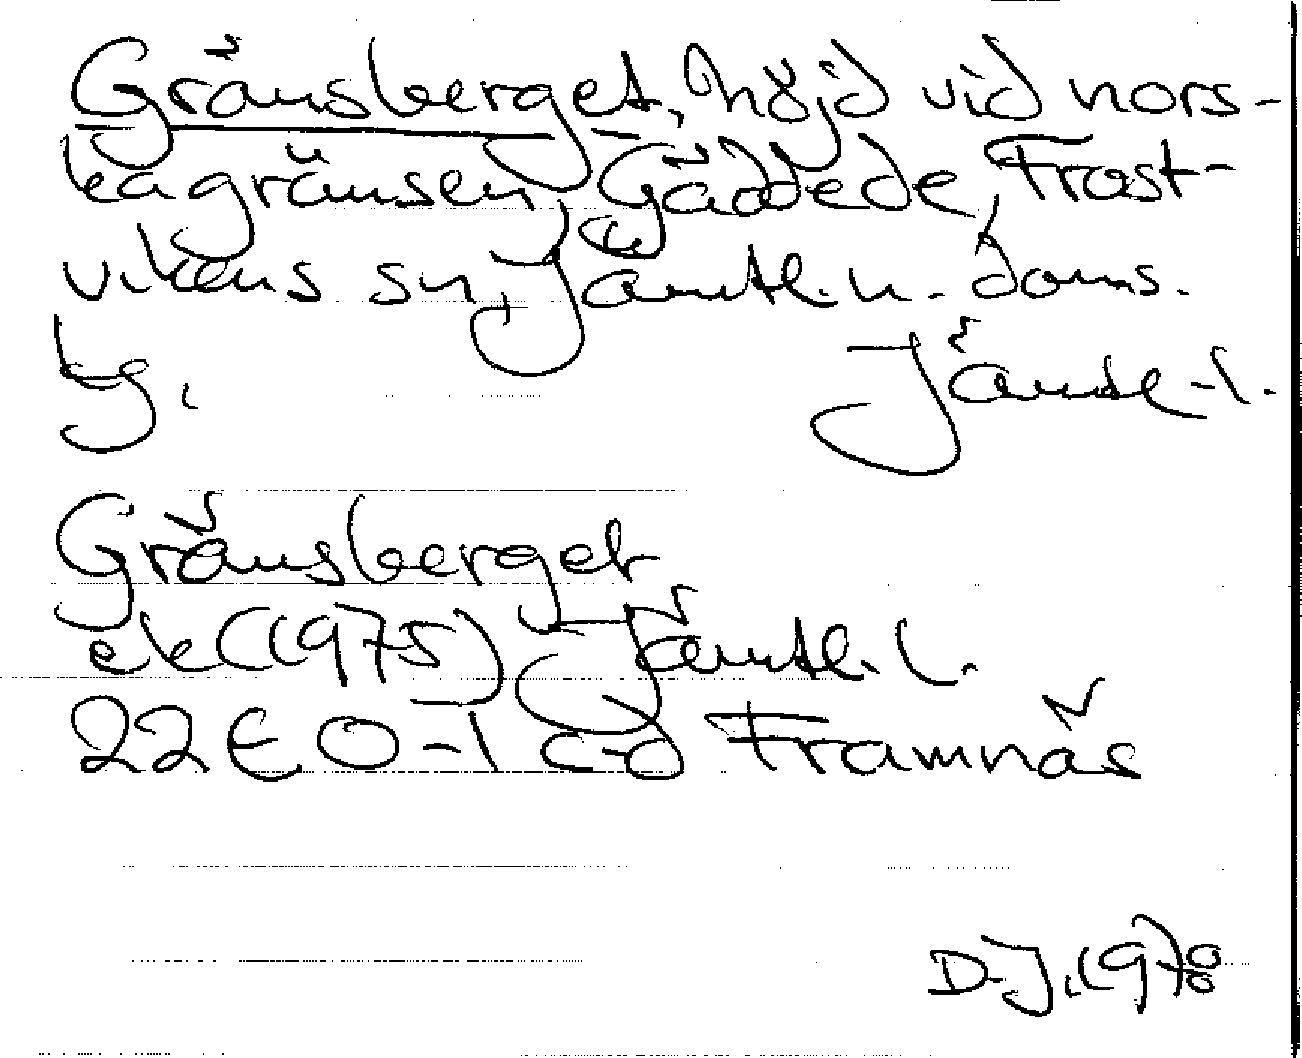 Gränsberget, höjd vid nors-
kagränsen, Gäddede, Frost-
vikens sn, Jämtl. n. doms.
Jämtl. l.
Gränsberget
ek (1975) Jämtl. l.
22E 0-1 c-d Framnäs
D.J. 1978